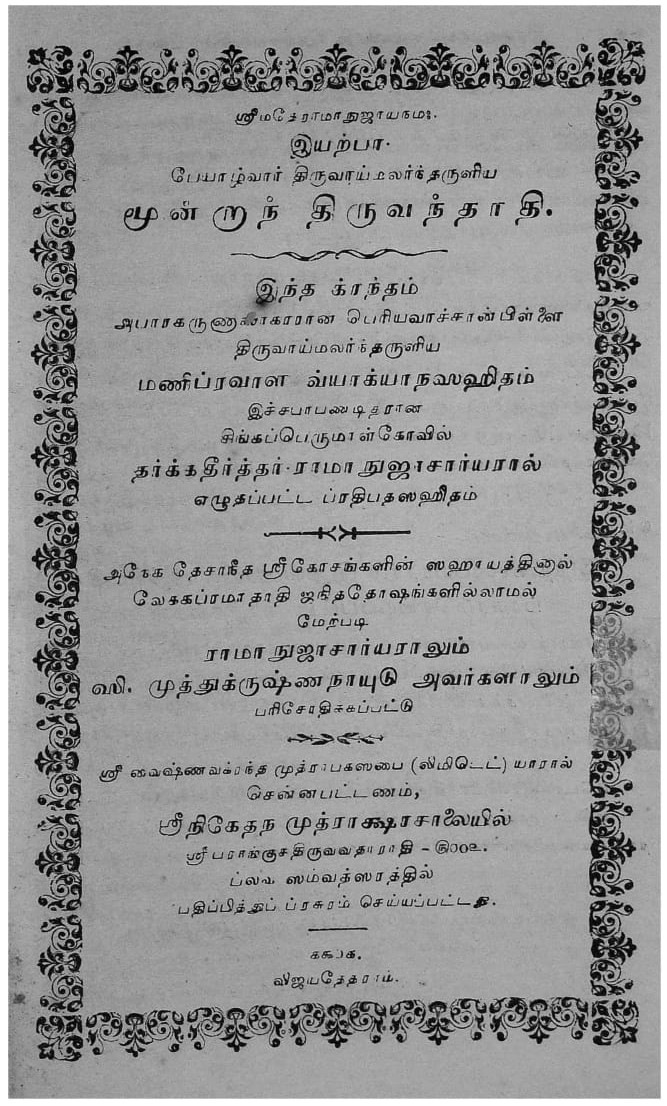 ஸ்ரீமதேராமாநுஜாயநம:.
இயற்பா.
பேயாழ்வார் திருவாய்மலர்ந்தருளிய
மூன்றந் திருவந்தாதி.
இந்த க்ரந்தம்
அபாரகருணாஸாகாரரான பெரியவாச்சான்பிள்ளை
திருவாய்மலர்ந்தருளிய
மணிப்ரவாள வ்யாக்யாநஸஹிதம்
இச்சபாபண்டிதரான
சிங்கப்பெருமாள்கோவில்
தர்க்கதீர்த்தர்-ராமாநுஜாசார்யரால்
எழுதப்பட்ட ப்ரதிபதஸஹிதம்
அநேக தேசாநீத ஸ்ரீகோசங்களின் ஸஹாயத்தினால்
லேககப்ரமாதாதி ஜநிததோஷங்களில்லாமல்
மேற்படி
ராமாநுஜாசார்யராலும்
ஸி. முத்துக்ருஷ்ணநாயுடு அவர்களாலும்
பரிசோதிக்கப்பட்டு
ஸ்ரீ வைஷ்ணவக்ரந்த முத்ராபகஸபை (லிமிடெட்) யாரால்
சென்னபட்டணம்,
ஸ்ரீநிகேதந முத்ராக்ஷரசாலையில்
ஸ்ரீபராங்குசதிருவவதாராதி -
ப்லவ ஸம்வத்ஸரத்தில்
பதிப்பித்துப் ப்ரசுரம் செய்யப்பட்டது.
விஜயதேதராம்.